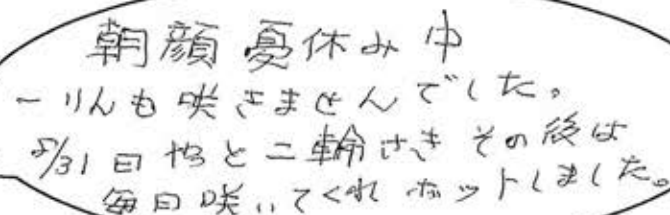 朝顔夏休み中
一りんも咲きませんでした。
8/31日やっと二輪さき その後は
毎日咲いてくれ ホットしました。